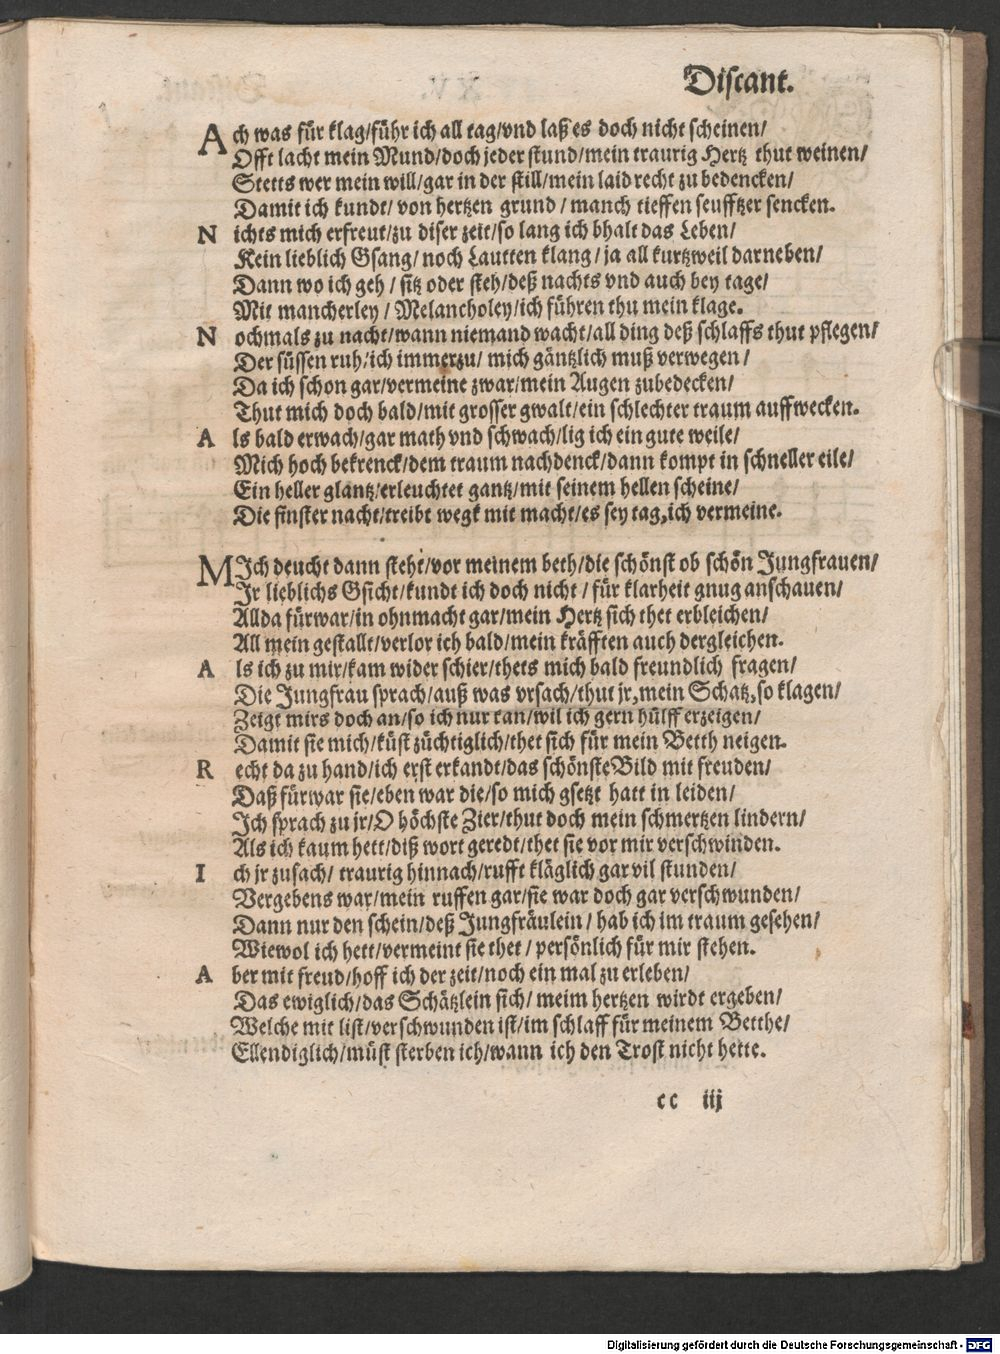 Discant.
Ach was für klag/führ ich all tag/vnd laß es doch nicht scheinen/
Offt lacht mein Mund/doch jeder stund/mein traurig Hertz thut weinen/
Stetts wer mein will/gar in der still/mein laid recht zu bedencken/
Damit ich kundt/von hertzen grund/manch tieffen seufftzer sencken.
Nichts mich erfreut/zu diser zeit/so lang ich bhalt das Leben/
Kein lieblich Gsang/noch Lautten klang/ja all kurtzweil darneben/
Dann wo ich geh/sitz oder steh/deß nachts vnd auch bey tage/
Mit mancherley/Melancholey/ich führen thu mein klage.
Nochmals zu nacht/wann niemand wacht/all ding deß schlaffs thut pflegen/
Der süssen ruh/ich immerzu/mich gäntzlich muß verwegen/
Da ich schon gar/vermeine zwar/mein Augen zubedecken/
Thut mich doch bald/mit grosser gwalt/ein schlechter traum auffwecken.
Als bald erwach/gar math vnd schwach/lig ich ein gute weile/
Mich hoch bekrenck/dem traum nachdenck/dann kompt in schneller eile/
Ein heller glantz/erleuchtet gantz/mit seinem hellen scheine/
Die finster nacht/treibt wegk mit macht/es sey tag,ich vermeine.
MIch deucht dann steht/vor meinem beth/die schönst ob schön Jungfrauen/
Jr lieblichs Gsicht/kundt ich doch nicht/für klarheit gnug anschauen/
Allda fürwar/in ohnmacht gar/mein Hertz sich thet erbleichen/
All mein gestallt/verlor ich bald/mein kräfften auch dergleichen.
Als ich zu mir/kam wider schier/thets mich bald freundlich fragen/
Die Jungfrau sprach/auß was vrsach/thut jr,mein Schatz,so klagen/
Zeigt mirs doch an/so ich nur kan/wil ich gern hülff erzeigen/
Damit sie mich/küst züchtiglich/thet sich für mein Betth neigen.
Recht da zu hand/ich erst erkandt/das schönste Bild mit freuden/
Daß fürwar sie/eben war die/so mich gsetzt hatt in leiden/
Ich sprach zu jr/O höchste Zier/thut doch mein schmertzen lindern/
Als ich kaum hett/diß wort geredt/thet sie vor mir verschwinden.
Ich jr zusach/traurig hinnach/rufft kläglich gar vil stunden/
Vergebens war/mein ruffen gar/sie war doch gar verschwunden/
Dann nur den schein/deß Jungfräulein/hab ich im traum gesehen/
Wiewol ich hett/vermeint sie thet/persönlich für mir stehen.
Aber mit freud/hoff ich der zeit/noch ein mal zu erleben/
Das ewiglich/das Schätzlein sich/meim hertzen wirdt ergeben/
Welche mit list/verschwunden ist/im schlaff für meinem Betthe/
Ellendiglich/müst sterben ich/wann ich den Trost nicht hette.
cc iij
Digitalisierung gefördert durch die Deutsche Forschungsgemeinschaft - DFG